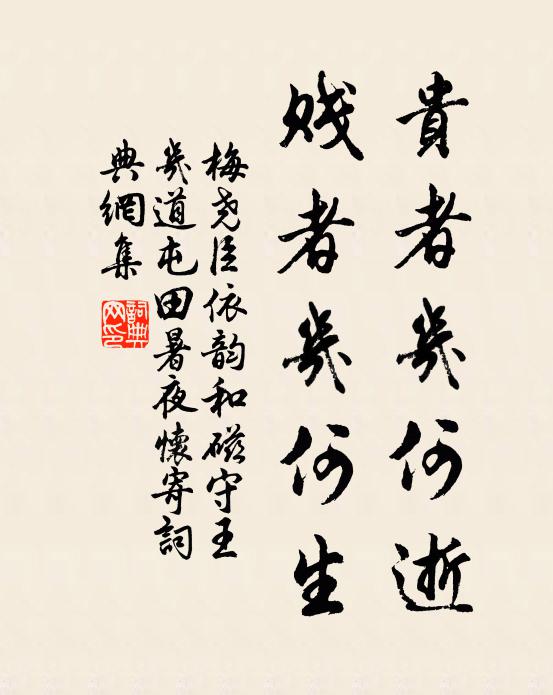 貴者幾何逝
賤者幾何生
梅堯臣依韵和磁守王
幾道屯田暑夜懷寄詞
典網集
詞典网印